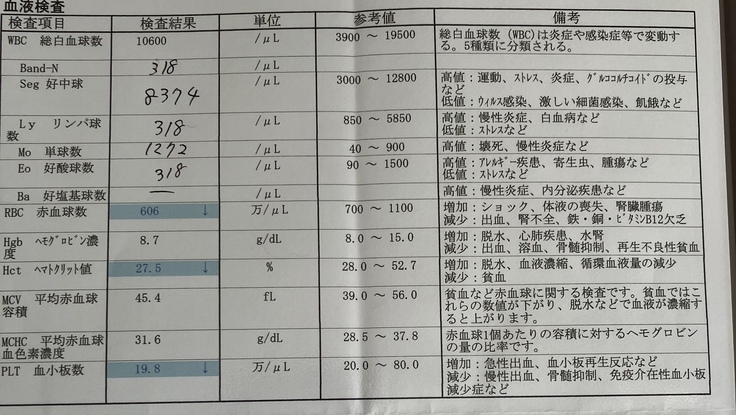 血液検査
検査項目 検査結果 単位 参考値 備考
WBC 総白血球数 10600 /μL 3900 ～ 19500 総白血球数 (WBC)は炎症や感染症等で変動する。5種類に分類される。
Band-N 318 /μL
Seg 好中球 8374 /μL 3000 ～ 12800 高値：運動、ストレス、炎症、グルココルチコイドの投与など
低値：ウィルス感染、激しい細菌感染、飢餓など
Ly リンパ球数 318 /μL 850 ～ 5850 高値：慢性炎症、白血病など
低値：ストレスなど
Mo 単球数 1272 /μL 40 ～ 900 高値：壊死、慢性炎症など
Eo 好酸球数 318 /μL 90 ～ 1500 高値：アレルギー疾患、寄生虫、腫瘍など
低値：ストレスなど
Ba 好塩基球数 — /μL 高値：慢性炎症、内分泌疾患など
RBC 赤血球数 606 ↓ 万/μL 700 ～ 1100 増加：ショック、体液の喪失、腎臓腫瘍
減少：出血、腎不全、鉄・銅・ビタミンB12欠乏
Hgb ヘモグロビン濃度 8.7 g/dL 8.0 ～ 15.0 増加：脱水、心肺疾患、水腎
減少：出血、溶血、骨髄抑制、再生不良性貧血
Hct ヘマトクリット値 27.5 ↓ % 28.0 ～ 52.7 増加：脱水、血液濃縮、循環血液量の減少
減少：貧血
MCV 平均赤血球容積 45.4 fL 39.0 ～ 56.0 貧血など赤血球に関する検査です。貧血ではこれらの数値が下がり、脱水などで血液が濃縮すると上がります。
MCHC 平均赤血球血色素濃度 31.6 g/dL 28.5 ～ 37.8 赤血球1個あたりの容積に対するヘモグロビンの量の比率です。
PLT 血小板数 19.8 ↓ 万/μL 20.0 ～ 80.0 増加：急性出血、血小板再生反応など
減少：慢性出血、骨髄抑制、免疫介在性血小板減少症など